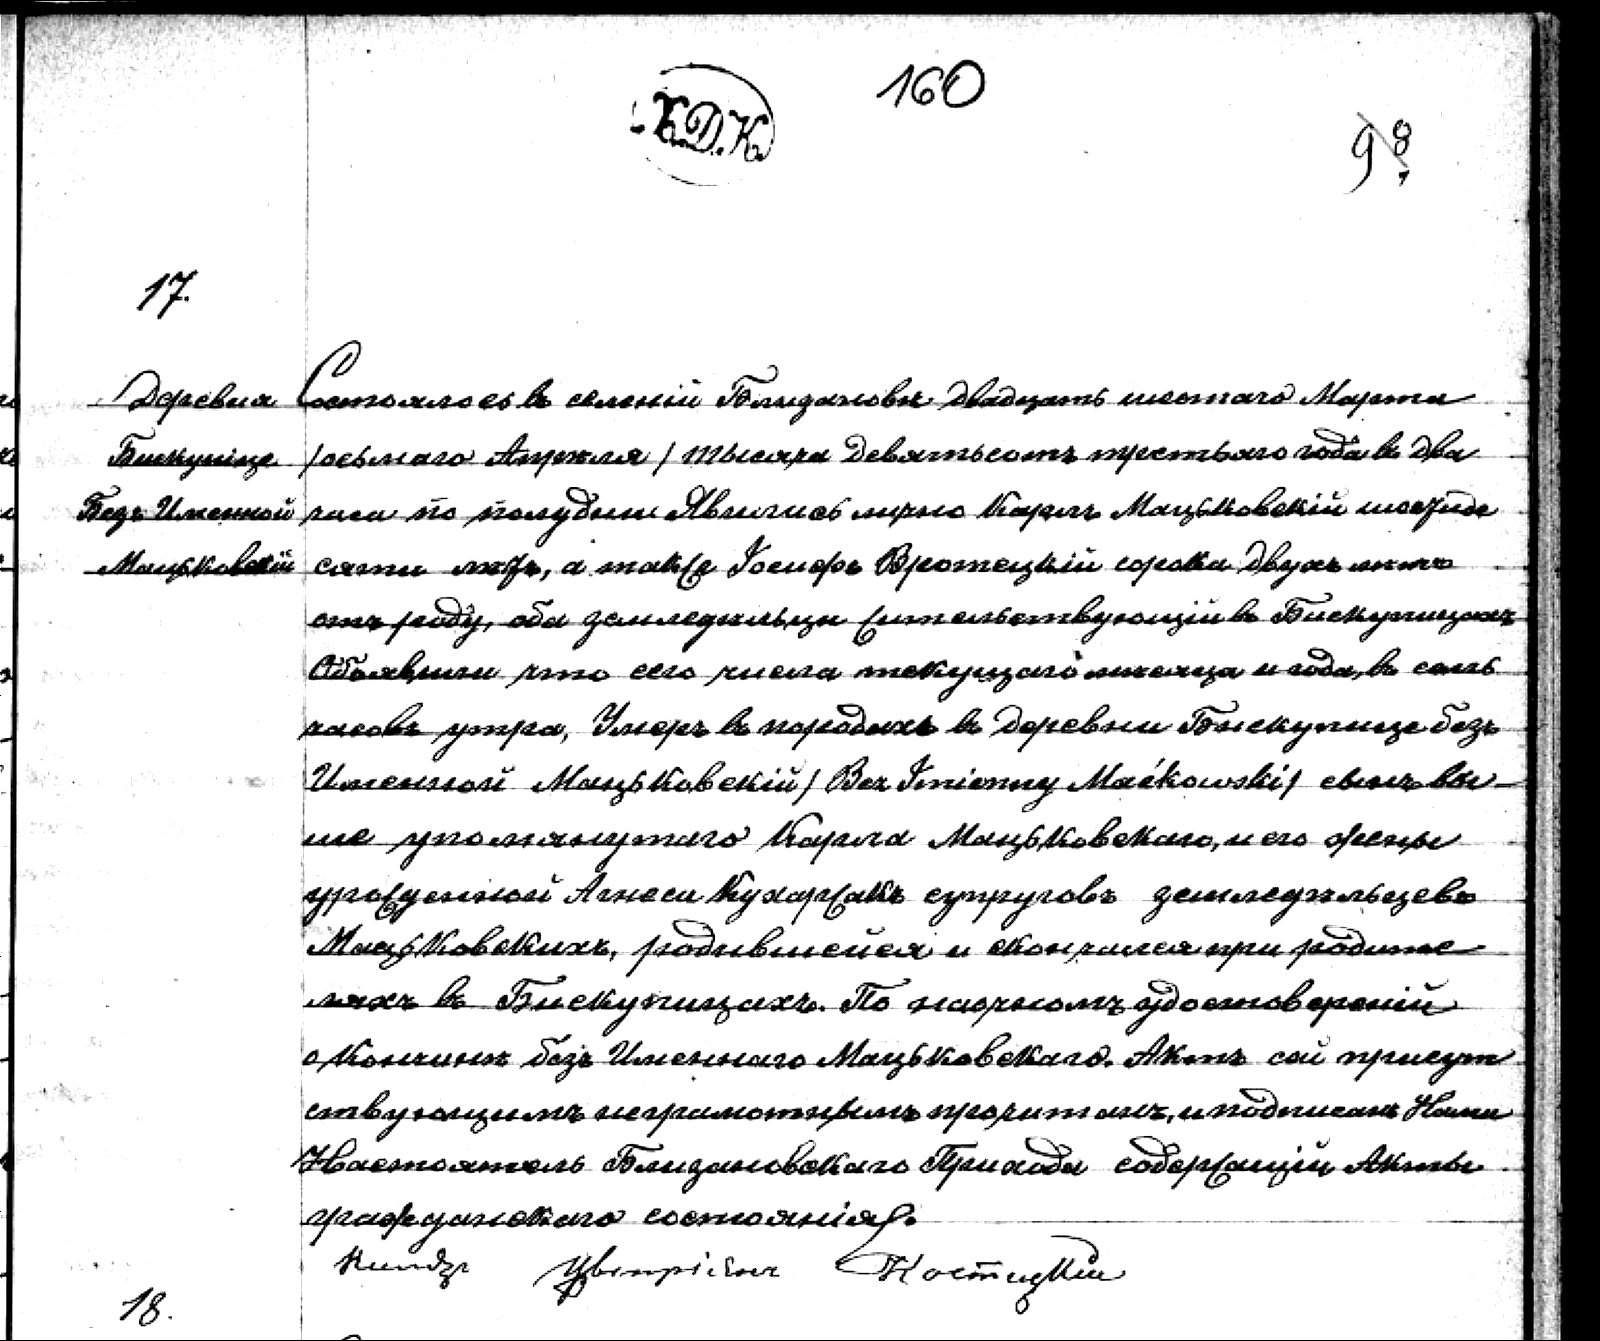 160
К.Д.К.
98
17.
Деревня
Бискупице
Безъ Именной
Мацьковскій
Состоялось въ селеній Близановѣ двадцать шестаго Марта
/осьмаго Апрѣля/ тысяча девятьсотъ третьяго года въ два
часа по полудни Явились лично Карлъ Мацьковскій шестде
сяти лѣтъ, а также Іосифъ Вротецкій сорока двухъ лѣтъ
отъ роду, оба земледѣльцы жительствующій въ Бискупицахъ
Объявили что сего числа текущаго мѣсяца и года, въ семь
часовъ утра, Умеръ въ породахъ въ деревни Бискупице безъ
Именной Мацьковскій /Bez Imienny Maćkowski/ сынъ вы-
ше упомянутаго Карла Мацьковскаго, и его жены
урожденной Агнеси Кухаржакъ супруговъ земледѣльцевъ
Мацьковскихъ, родившейся и скончался при родите
ляхъ въ Бискупицахъ. По наочномъ удостовереній
о Кончинѣ безъ Именнаго Мацьковскаго. Актъ сей присут
ствующимъ неграмотнымъ прочитанъ, и подписанъ Нами
Настоятель Близановскаго Прихода содержащій Акты
гражданскаго состоянія.
Ксендзъ Костецкій
18.